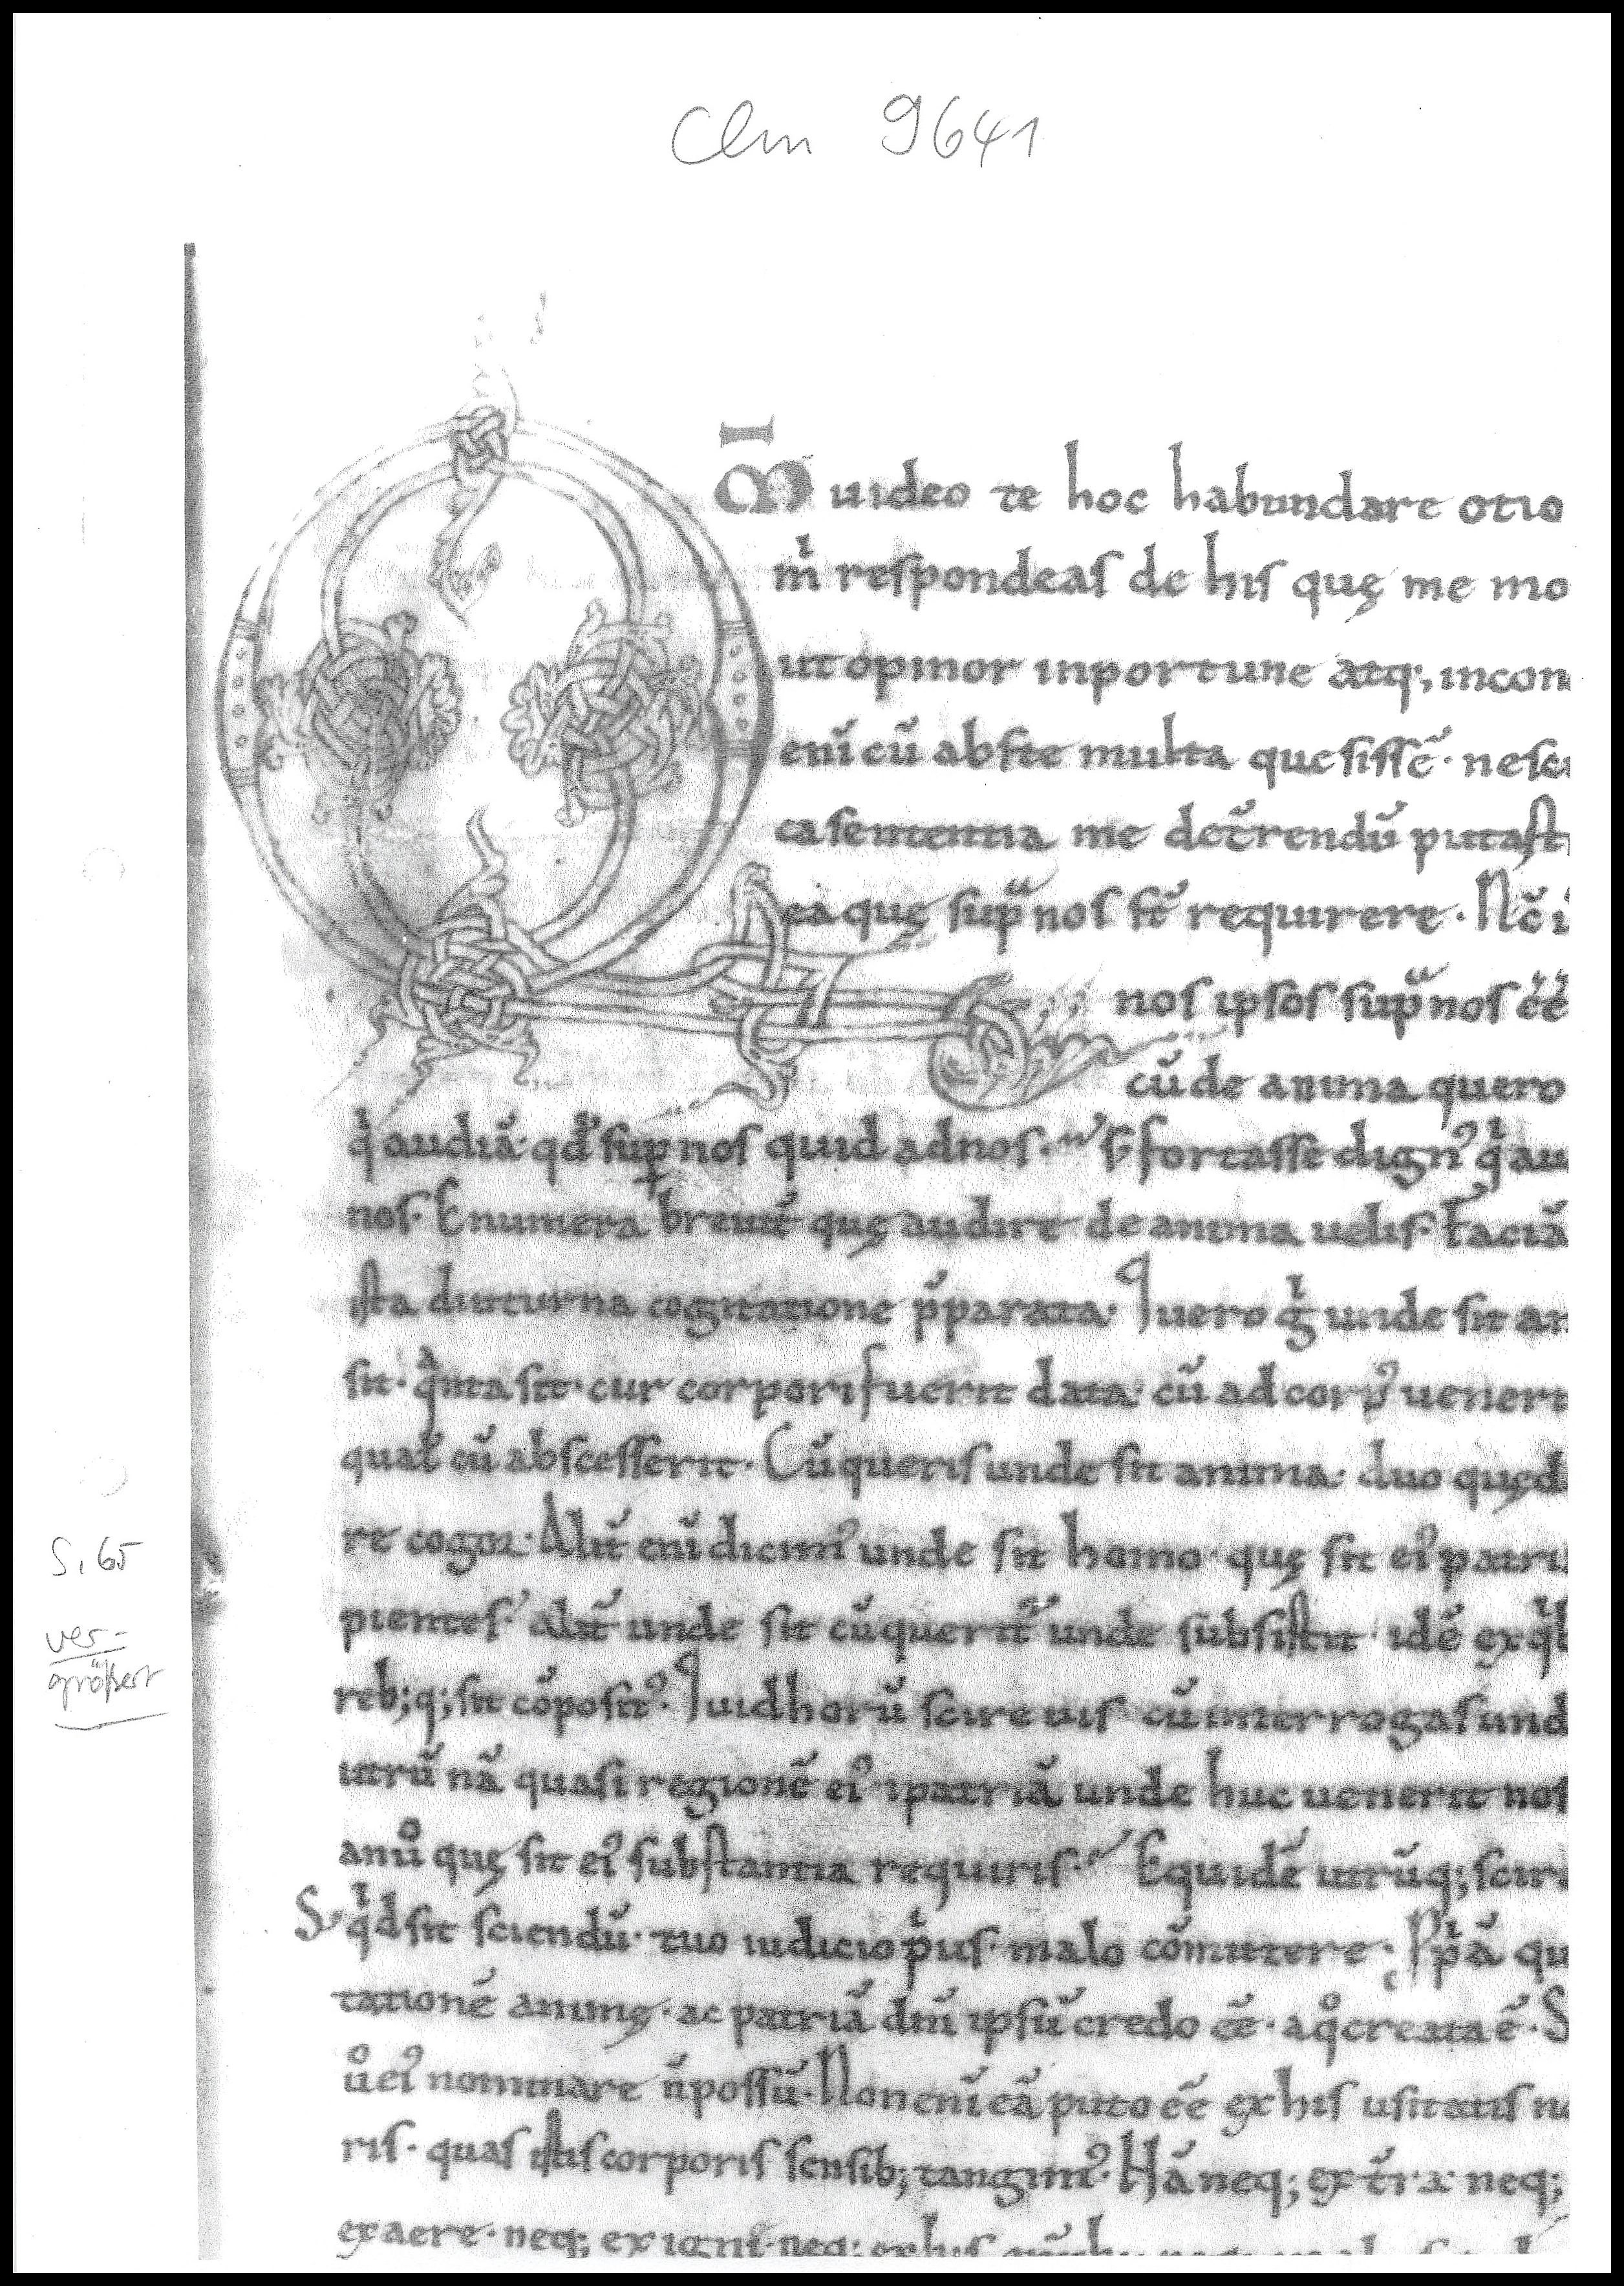 Clm 9641
QM I uideo te hoc habundare otio
m̍ respondeas de his quę me mo
ut opinor inportune atq; incon
eni̅ cu̅ abste multa quesisse̅. nesc
ca sententia me det̅rendu̅ putasti
ea quę sup̅ nos st̅ requirere. Nc̅
nos ipsos sup̅ nos e̅e̅
cu̅ de anima quero
q̍ audia̅. qd̅ sup nos quid ad nos. s; fortasse dign᾿ q̍ au
nos. Enumera breuit̅ quę audire de anima uelis. Facia̅
ista diuturna cogitatione p̅parata. Quero g̍ unde sit an
sit. q̍nta sit. cur corpori fuerit data. cu̅ ad corp᾿ uenerit
qual̅ cu̅ abscesserit. Cu̅ queris unde sit anima. duo quęd
re cogor. Alit̅ eni̅ dicim᾿ unde sit homo. quę sit ei᾿ patri
pientes. alit̅ unde sit cu̅ querit᾿ unde subsistit. ide̅ ex q̍b
reb; q; sit co̅posit᾿. Quid horu̅ scire uis cu̅ interrogas und
utru̅ na̅ quasi regione̅ ei᾿. i patria̅ unde huc uenerit nos
an uͦ quę sit ei᾿ substantia requiris. Equide̅ utru̅q; scire
S. q̍d sit sciendu̅. tuo iudicio p̍us. malo co̅mittere. Ppͥa̅ qu
tatione̅ animę. ac patria̅ dm̅ ipsu̅ credo e̅e̅. a qͦ creata e̅. S
uͦ ei᾿ nominare n̅ possu̅. Non eni̅ ea̅ puto e̅e̅ ex his usitatis n
ris. quas istis corporis sensib; tangim᾿. Na̅ neq; ex t̅ra neq;
ex aere. neq; ex igni. neq; ex his
S. 65
ver-
größert